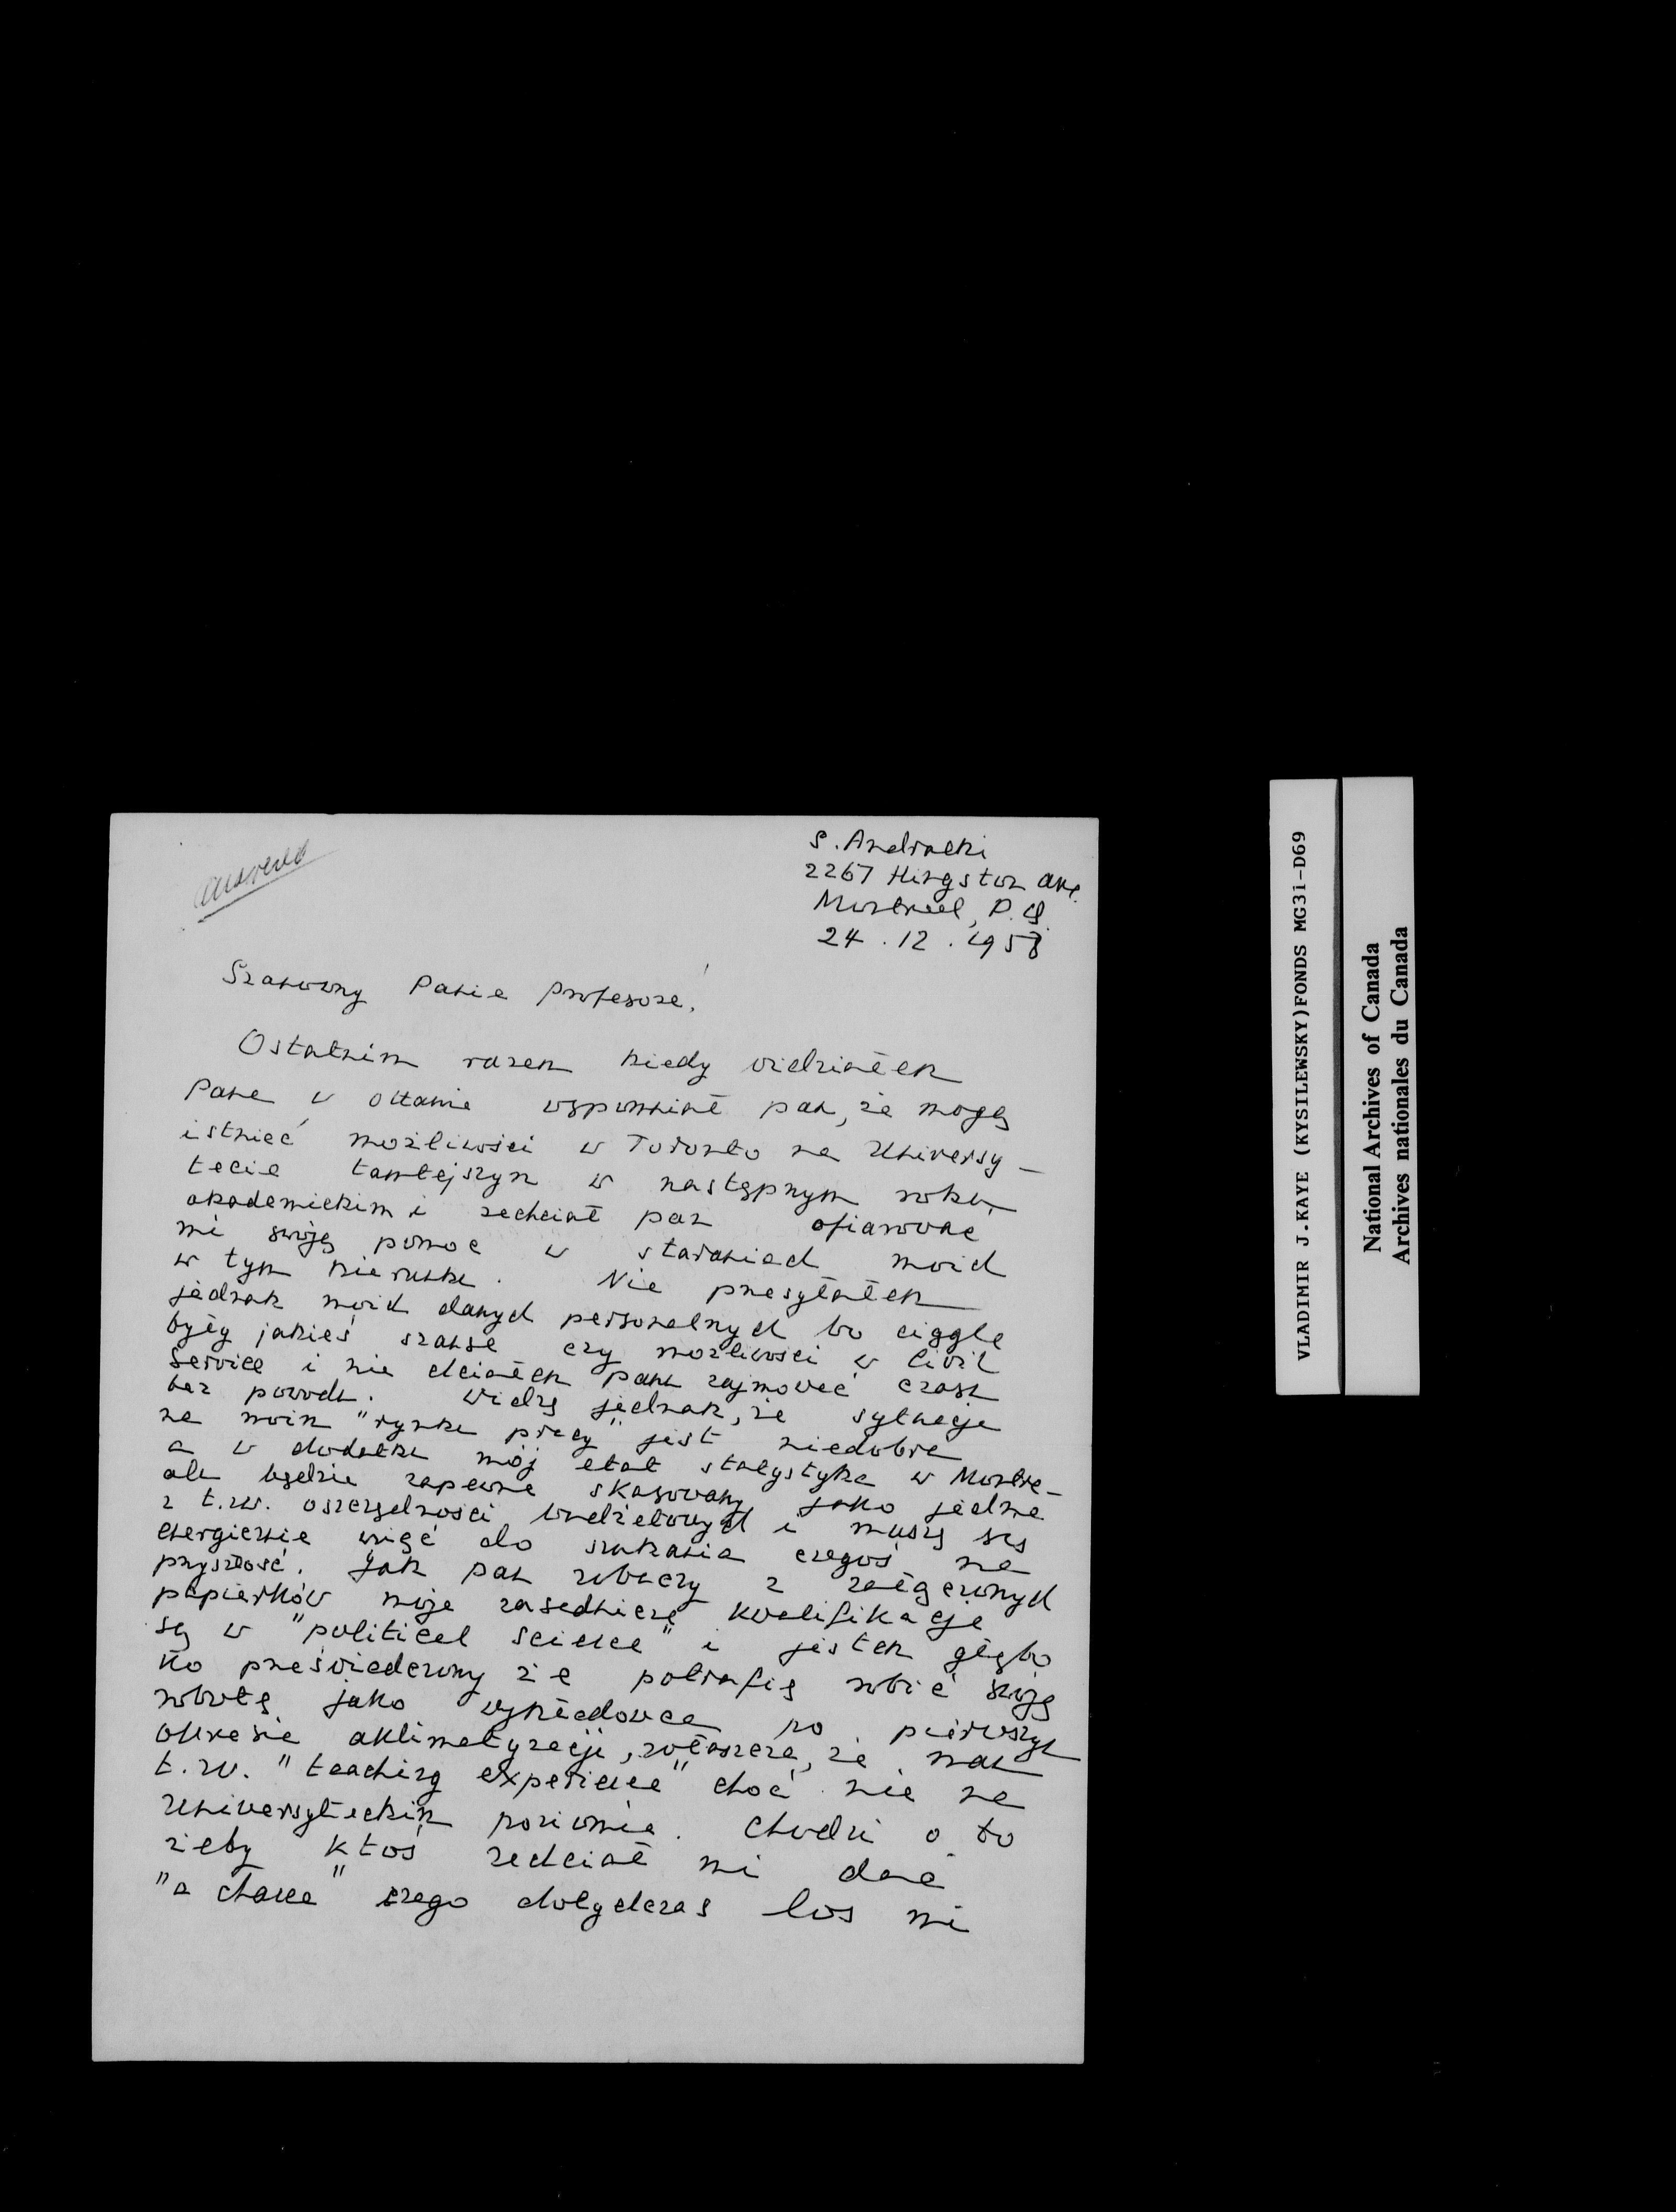 answered
S. Andracki
2267 Hingston Ave.
Montreal, P.Q.
24.12.1958
Szanowny Panie Profesorze!
Ostatnim razem kiedy widziałem
Pana w Ottawie wspomniał pan, że mogą
istnieć możliwości w Toronto na Uniwersy-
tecie tamtejszym w następnym roku
akademickim i zechciał pan ofiarować
mi swoją pomoc w staraniach moich
w tym kierunku. Nie przesyłałem
jednak moich danych personalnych bo ciągle
były jakieś szanse czy możliwości w Civil
Service i nie chciałem panu zajmować czasu
bez powodu. Widzę jednak, że sytuacja
na moim "rynku pracy" jest niedobra
a w dodatku mój etat statystyka w Montre-
alu będzie zapewne skasowany jako jedna
z t.zw. oszczędności budżetowych i muszę się
energicznie wziąć do szukania czegoś na
przyszłość. Jak pan zobaczy z załączonych
papierków moje zasadnicze kwalifikacje
są w "political science" i jestem głębo
ko przeświadczony że potrafię robić swoją
robotę jako wykładowca po pierwszym
okresie aklimatyzacji, zwłaszcza, że mam
t.zw. "teaching experience" choć nie na
Uniwersyteckim poziomie. Chodzi o to
żeby ktoś zechciał mi dać
"a chance" czego dotychczas los mi
VLADIMIR J.KAYE (KYSILEWSKY)FONDS MG31-D69
National Archives of Canada
Archives nationales du Canada